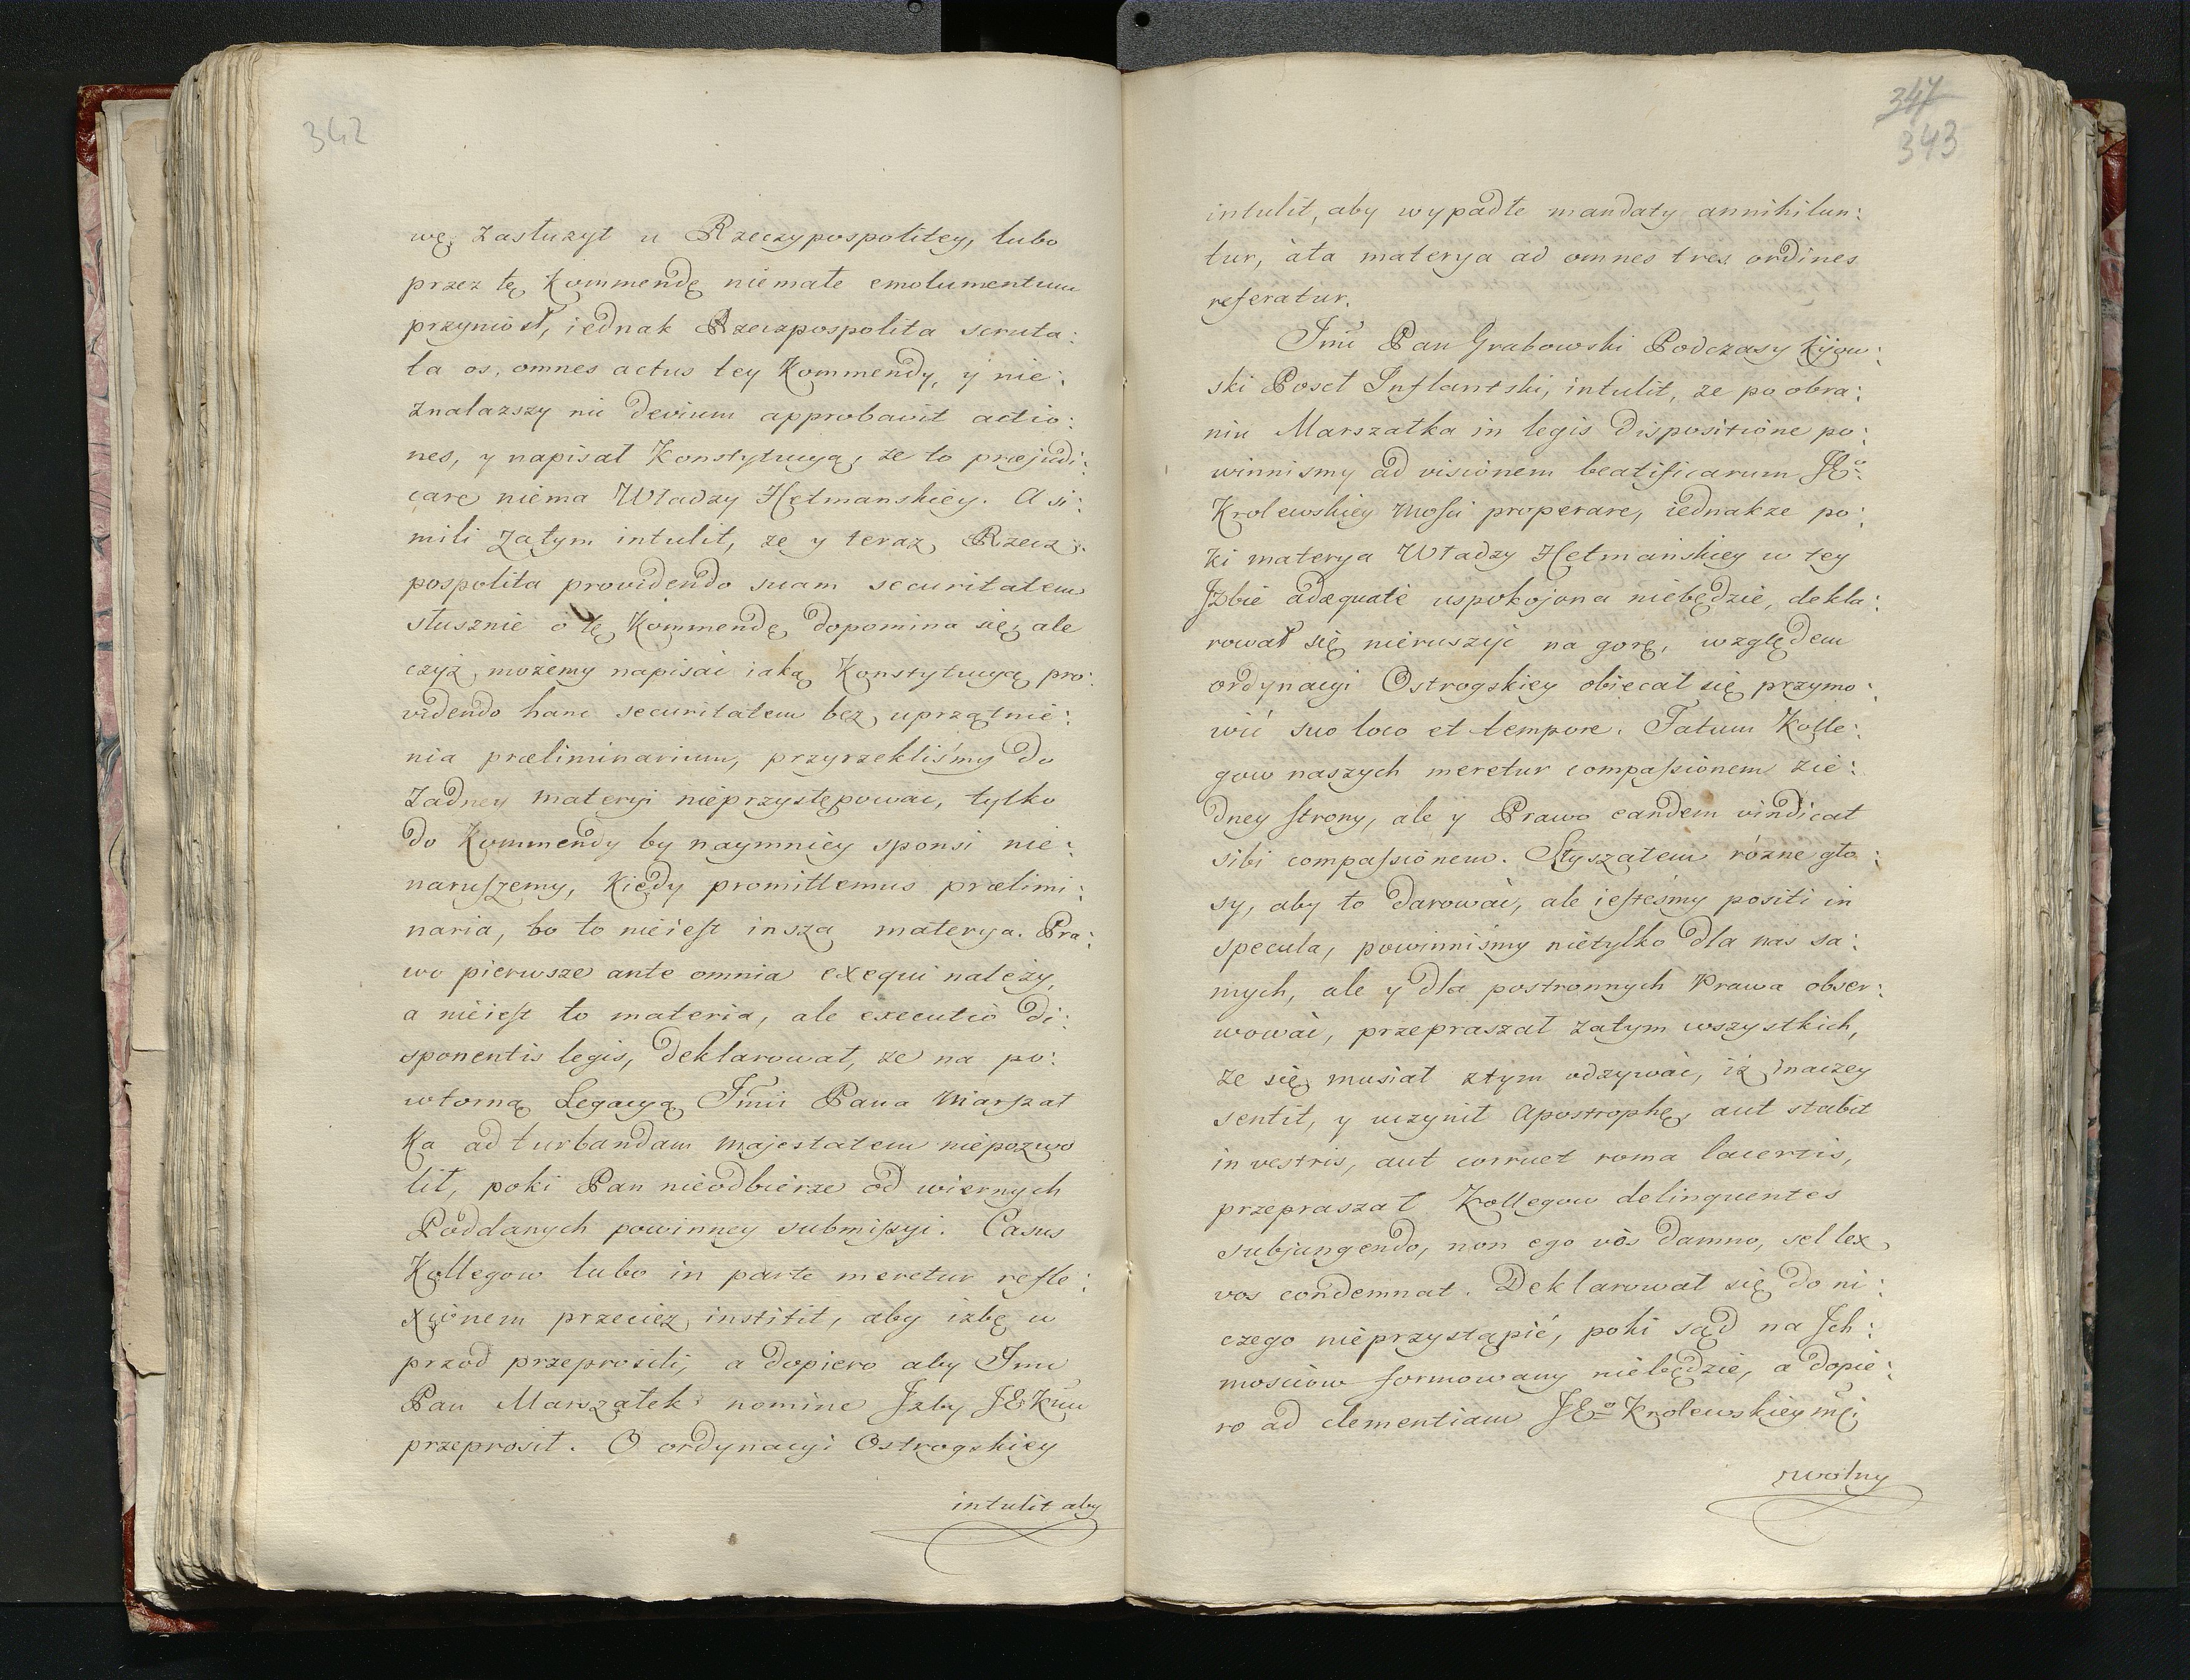 342
wę zasłużył u Rzeczypospolitey, lubo
przez tę Kommendę niemałe emolumentum
przyniosł, iednak Rzeczpospolita scruta:
ta os, omnes actus tey Kommendy, y nie:
znalazszy nic devium approbavit actio:
nes, y napisał Konstytucyą, że to præjudi:
care niema Władzy Hetmanskiey. A si:
mili zatym intulit, że y teraz Rzecz:
pospolita providendo suam securitatem
słusznie o tę Kommendę dopomina się, ale
czyż możemy napisać iaką Konstytucyą pro:
videndo hanc securitatem bez uprzątnie:
nia præliminarium, przyrzekliśmy do
żadney materyi nieprzystępować, tylko
do Kommendy by naymniey sponsi nie:
naruszemy, kiedy promittemus prælimi:
naria, bo to nieiest insza materya. Pra:
wo pierwsze ante omnia exequi należy,
a nieiest to materia, ale executio di:
sponentis legis, deklarował, że na po:
wtorną Legacyą Jmci Pana Marszał
ka ad turbandam Majestatem niepozwo
lił, poki Pan nieodbierze od wiernych
Poddanych powinney submissyi. Casus
Kollegow lubo in parte meretur refle:
xionem przecież institit, aby izbę w
przod przeprosili, a dopiero aby Jmc
Pan Marszałek nomine Jzby JEKmci
przeprosił. O ordynacyi Ostrogskiey
intulit aby
347
343
intulit, aby wypadłe mandaty annihilun:
tur, àta materya ad omnes tres ordines
referatur.
Jmć Pan Grabowski Podczasy Kijow:
ski Poseł Inflantski, intulit, że po obra:
niu Marszałka in legis dispositione po:
winnismy ad visionem beatificarum JEo
Krolewskiey Mości properare, iednakże po:
ki materya Władzy Hetmańskiey w tey
Jzbie adæquate uspokojona niebędzie, dekla:
rował się nieruszyć na gorę, względem
ordynacyi Ostrogskiey obiecał się przymo:
wić suo loco et tempore. Fatum Kolle:
gow naszych meretur compassionem zie:
dney strony, ale y Prawo eandem vindicat
sibi compassionem. Słyszałem różne gło:
sy, aby to darować, ale iesteśmy positi in
specula, powinniśmy nietylko dla nas sa:
mych, ale y dla postronnych Prawa obser:
wować, przepraszał zatym wszystkich,
że się musiał ztym odzywać, iż inaczey
sentit, y uczynił Apostrophę, aut stabit
in vestris, aut corruet roma lacertis,
przepraszał Kollegow delinquentes
subjungendo, non ego vos damno, sel lex
vos condemnat. Deklarował się do ni:
czego nieprzystąpić, poki sąd na Ich:
mosciow formowany niebędzie, a dopie:
ro ad clementiam JEo Krolewskiey mci
zwolny